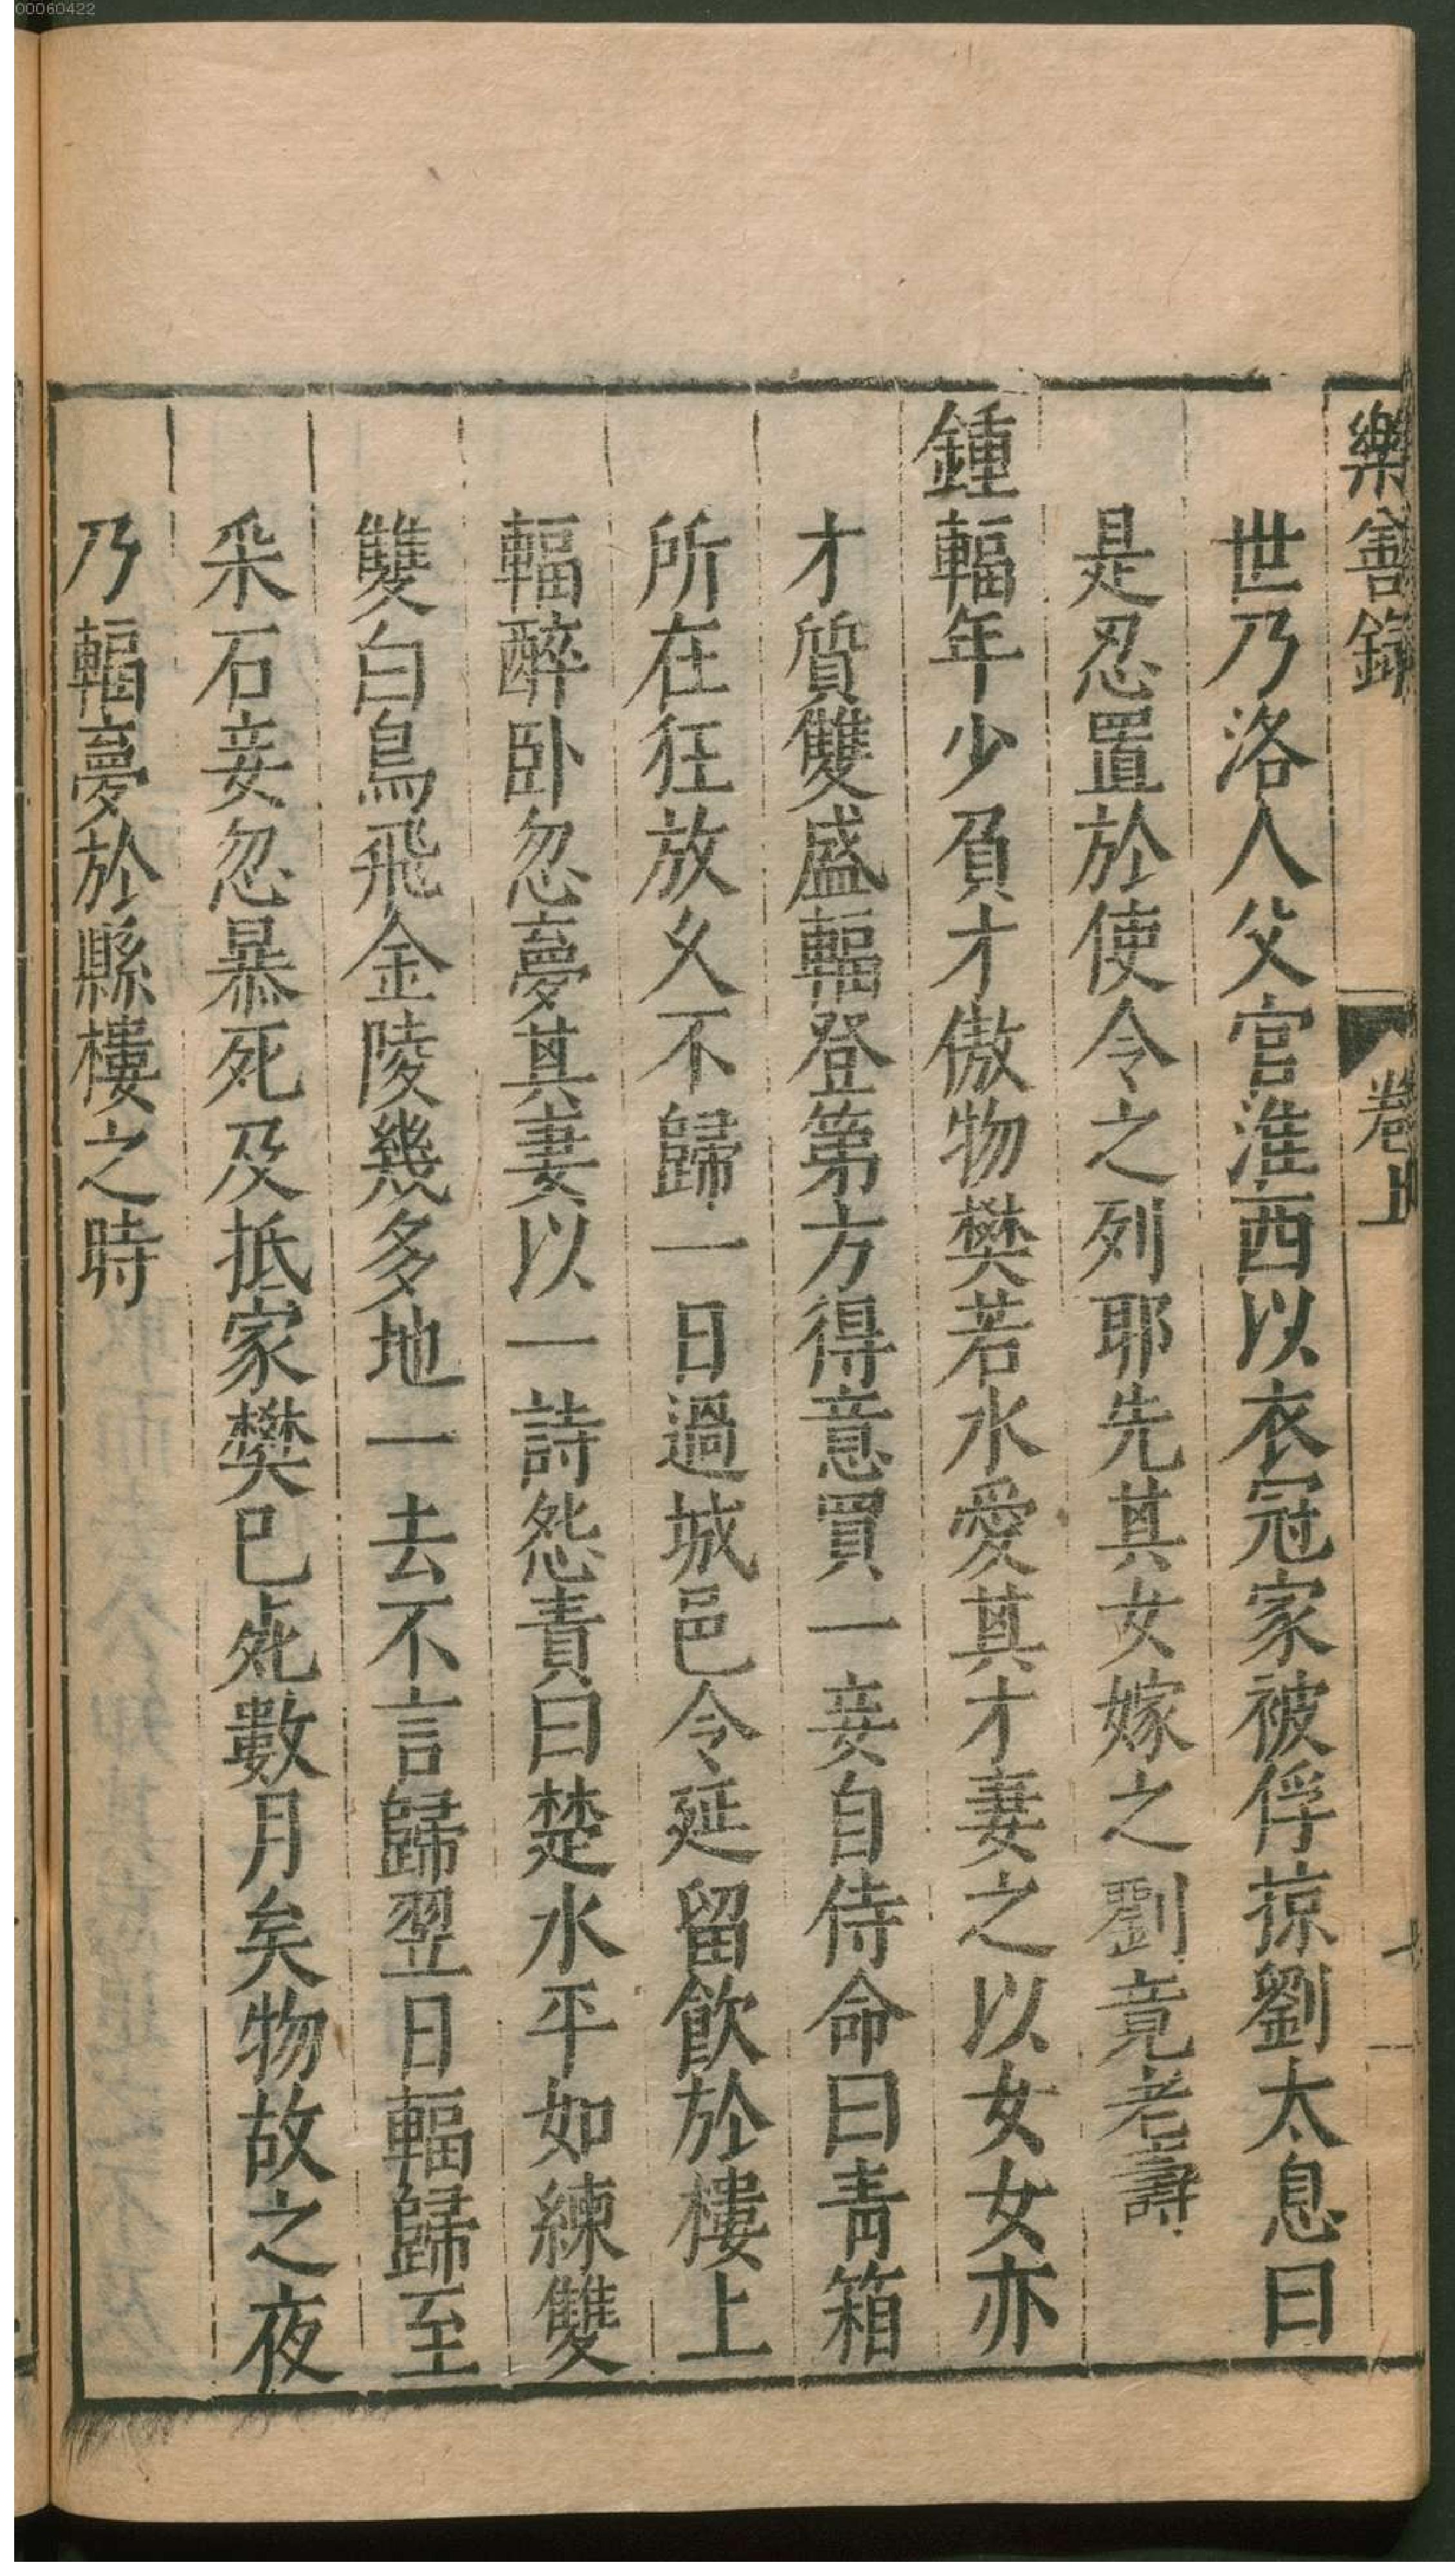 00060422
樂善錄 卷上 七
世乃洛人父官淮西以衣冠家被俘掠劉太息曰
是忍置於使令之列耶先其女嫁之劉竟老壽
鍾輻年少負才傲物樊若水愛其才妻之以女女亦
才質雙盛輻登第方得意買一妾自侍命曰青箱
所在狂放久不歸一日過城邑令延留飲於樓上
輻醉卧忽夢其妻以一詩怨責曰楚水平如練雙
雙白鳥飛金陵幾多地一去不言歸翌日輻歸至
采石妾忽暴死及抵家樊巳死數月矣物故之夜
乃輻夢於縣樓之時